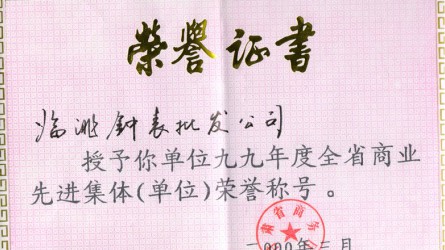 荣誉证书
临洮钟表批发公司
授予你单位九九年度全省商业
先进集体(单位)荣誉称号。
肃省商务
二000年三月